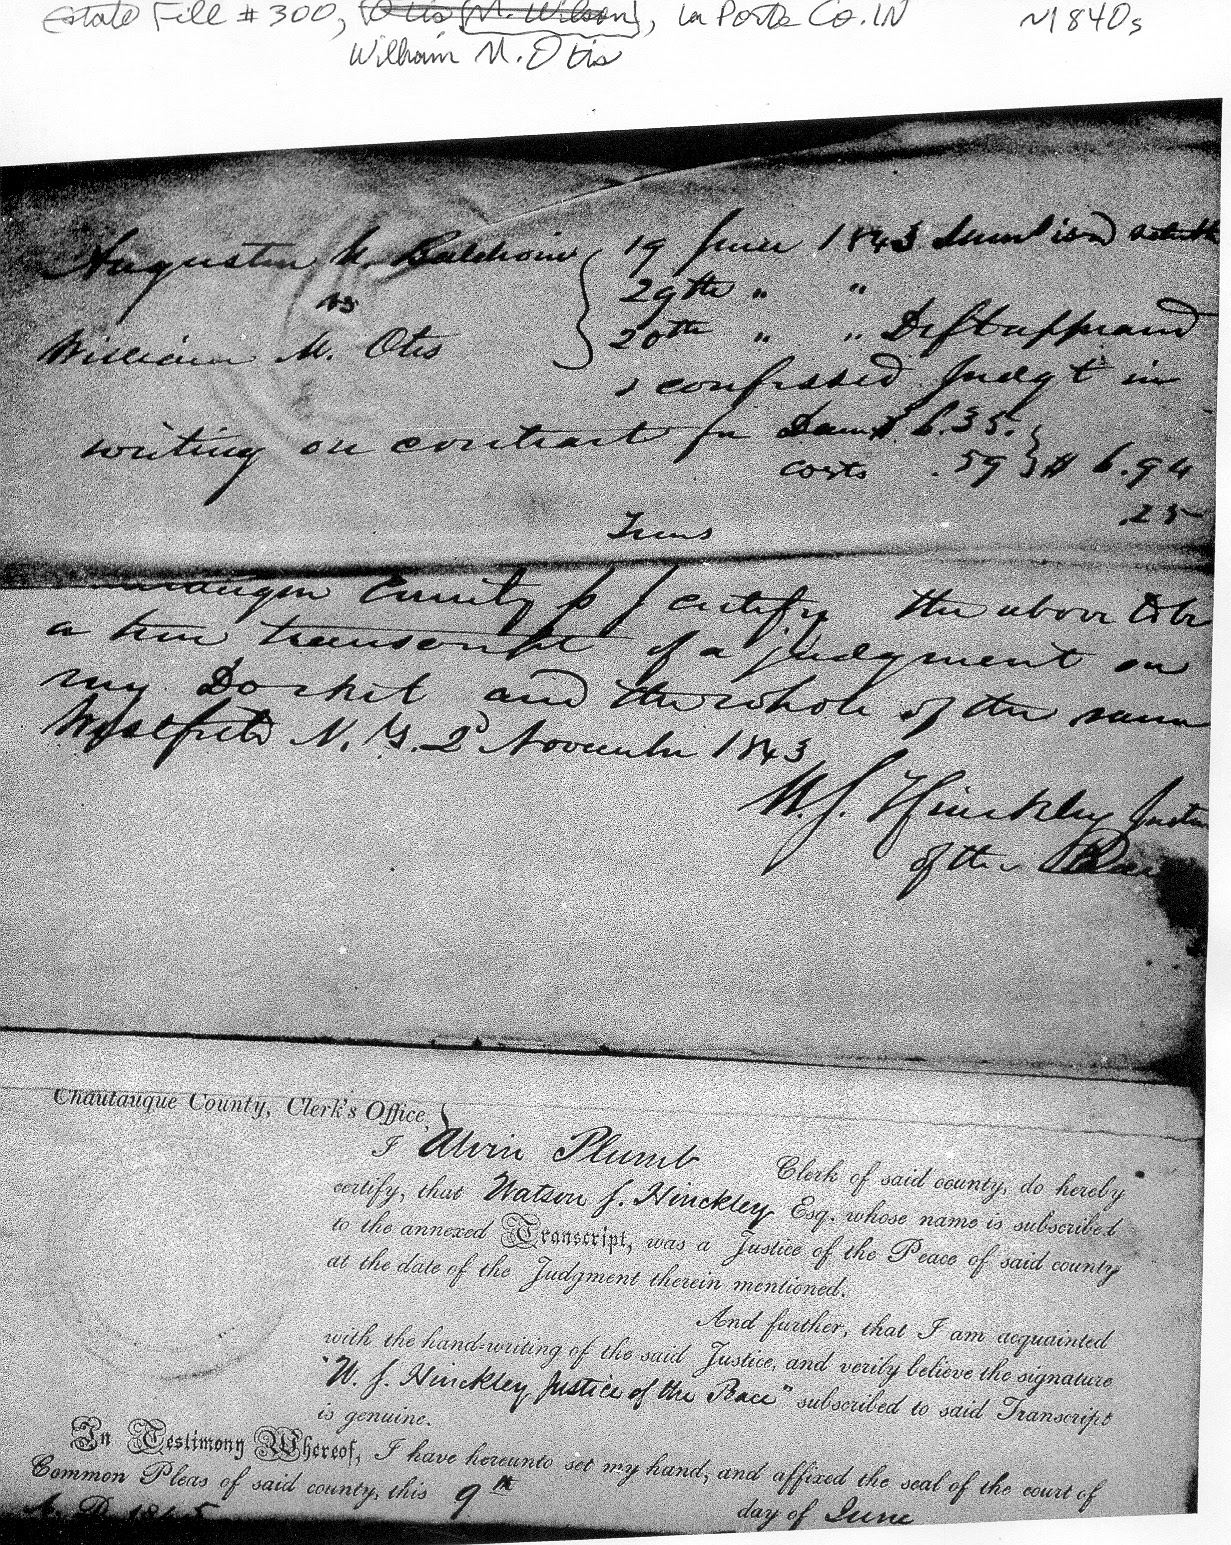 Estate File #300, Otis (M. Wilson), La Porte Co. IN ~1840s
William M. Otis
19 June 1843 Summ isd
Augustin U. Baldwin
29th " "
vs
20th " " Deft appeared
William M. Otis
& confessed Judgt in
writing on contract for Dam $ 6.35.
costs .59 } $ 6.94
Trans .25
County ss I certify the above to be
a true transcript of a judgment on
my Docket and the whole of the same
Westfield N.Y. 2d November 1843
W. J. Hinckley Justice
of the Peace
Chautauque County, Clerk's Office,
I Alvin Plumb Clerk of said county, do hereby
certify, that Watson J. Hinckley Esq. whose name is subscribed
to the annexed Transcript, was a Justice of the Peace of said county
at the date of the Judgment therein mentioned.
And further, that I am acquainted
with the hand-writing of the said Justice, and verily believe the signature
"W. J. Hinckley Justice of the Peace" subscribed to said Transcript
is genuine.
In Testimony Whereof, I have hereunto set my hand, and affixed the seal of the court of
Common Pleas of said county, this 9th day of June
A. D. 1845